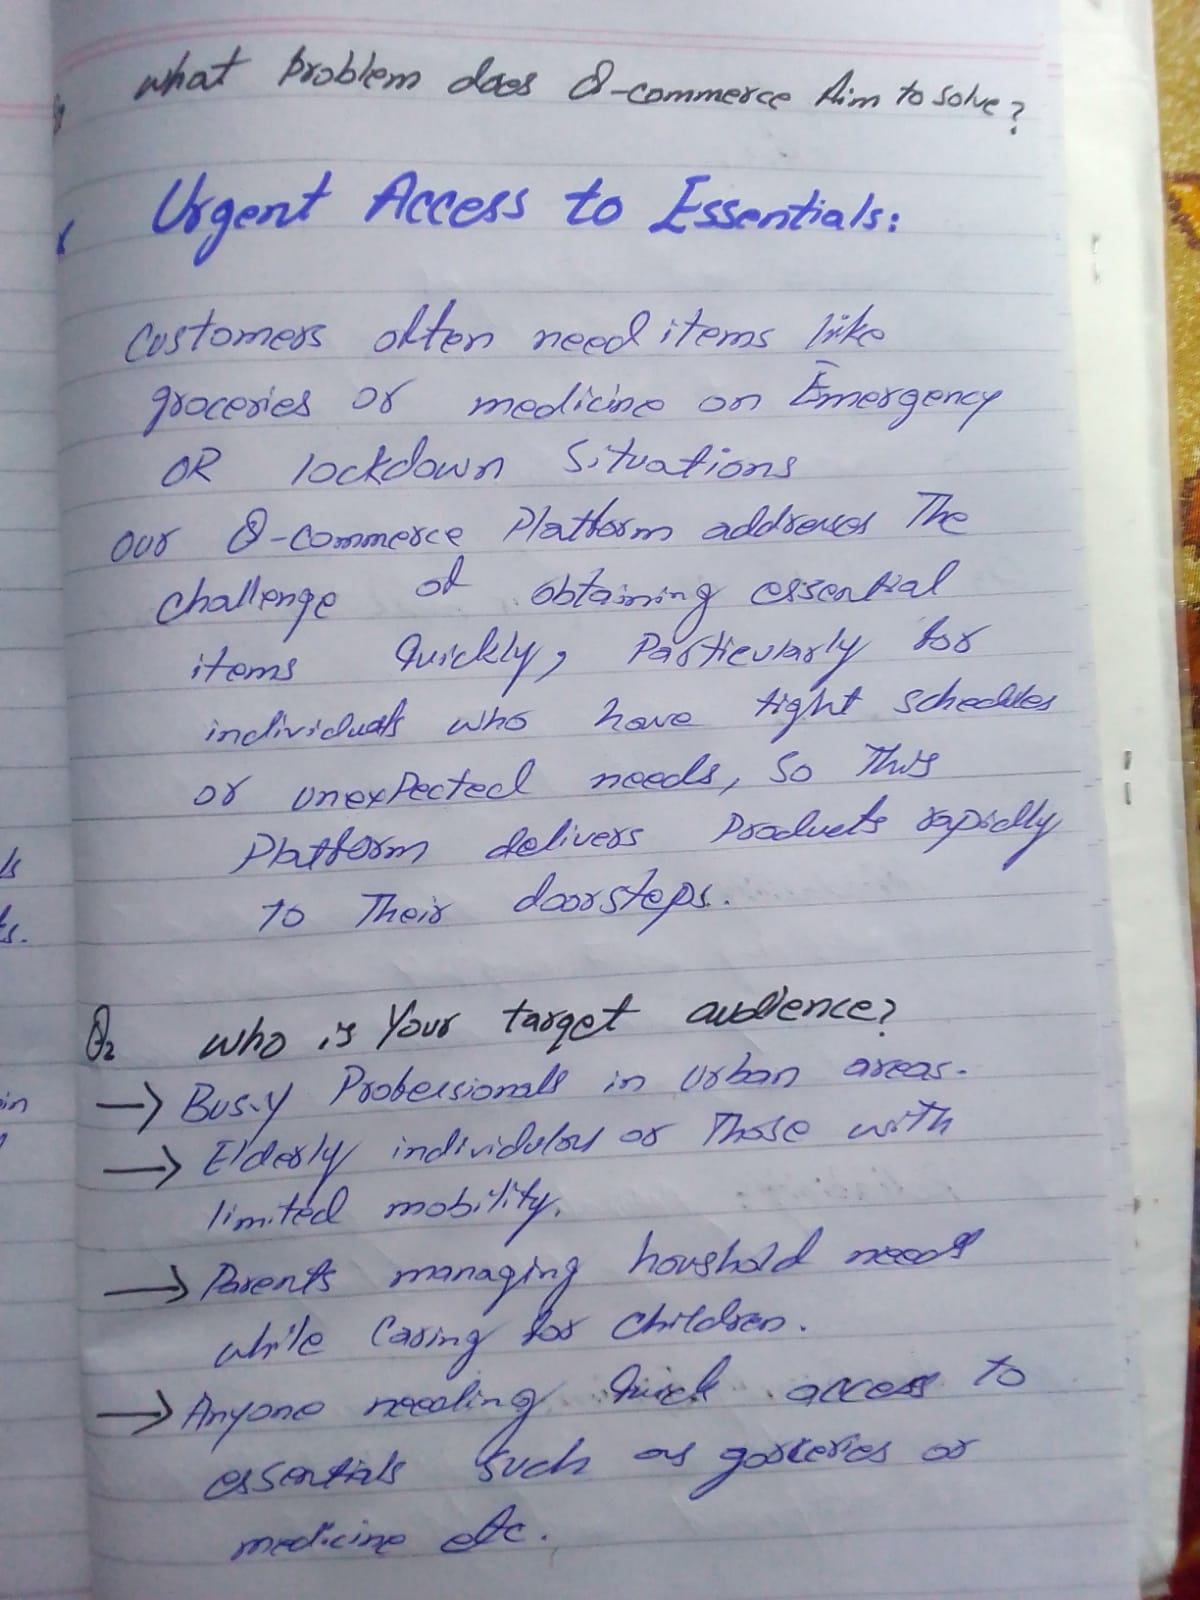 what problem does Q-commerce Aim to solve?
Urgent Access to Essentials:
Customers often need items like
groceries or medicine on Emergency
OR lockdown Situations
our Q-commerce Platform addresses The
challenge of obtaining essential
items Quickly, Particularly for
individuals who have tight schedules
or unexpected needs, So This
Platform delivers Products rapidly
to Their doorsteps.
Q2 who is Your target audience?
→ Busy Professionals in urban areas.
→ Elderly individulas or Those with
limited mobility.
→ Parents managing houshold needs
while Caring for children.
→ Anyone needing Quick access to
essentials such as gorceries or
medicine etc.